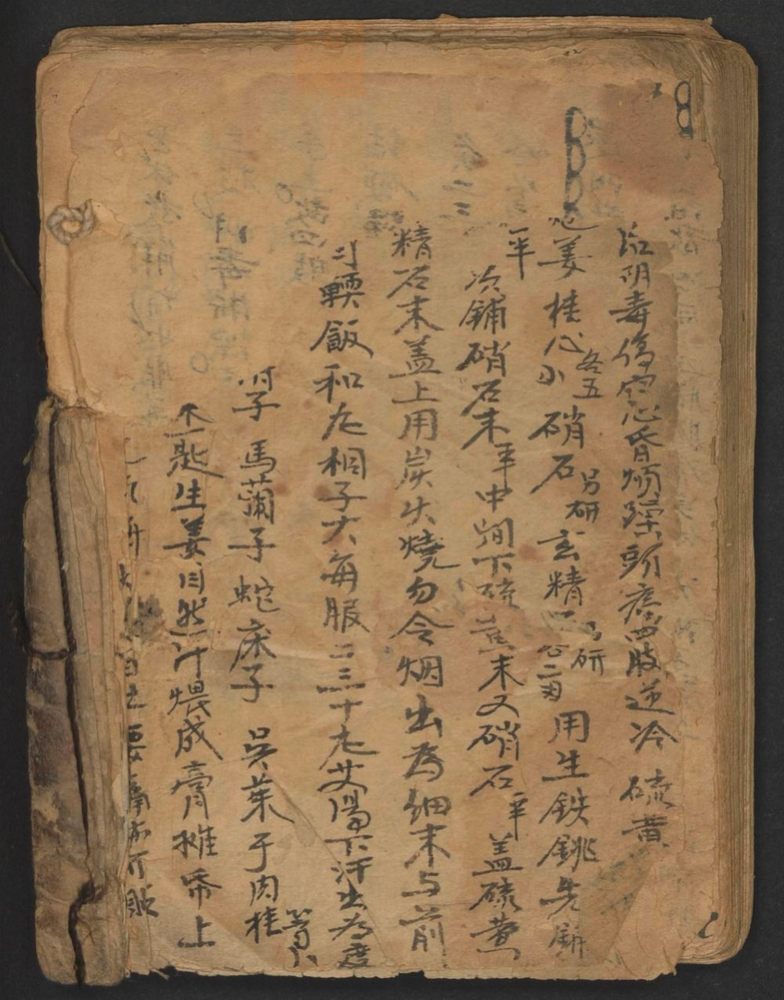 治阴毒伤寒心昏烦躁頭疼四肢逆冷 硫黄
姜桂心 各五 硝石 另研 玄精石 另研 各二両 用生鉄銚先鋪
次鋪硝石末一半中间下硫黄末又硝石一半盖硫黄
精石末盖上用炭火燒勿令烟出為细末与前
輭飯和丸桐子大每服二三十丸艾湯下汗出為度
附子 馬蘭子 蛇床子 吴茱于肉桂 等分
一匙生姜自然汁煨成膏摊帋上